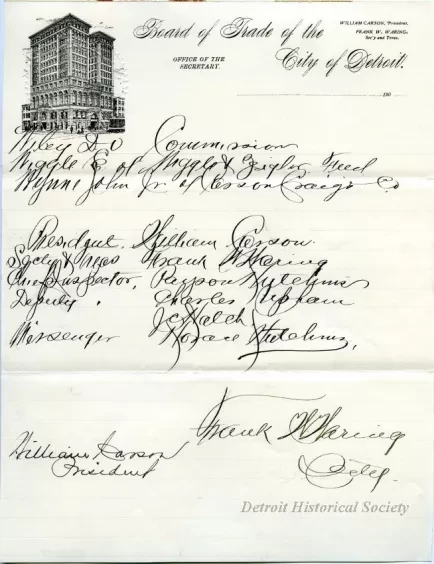 Board of Trade of the
City of Detroit.
WILLIAM CARSON, President.
FRANK W. WARING,
Sec'y and Treas.
OFFICE OF THE
SECRETARY.
190
Wiley D O Commission
Wiggle E of Wiggle & Zeigler Feed
Wynne John Jr of Craig & Co
President. William Carson.
Secty & Treas Frank W Waring
Chief Inspector, Hutchins
Deputy, Charles Upham
J C Hatch
Messenger Horace Hutchins,
Frank W Waring
William Carson
President
Secty.
Detroit Historical Society